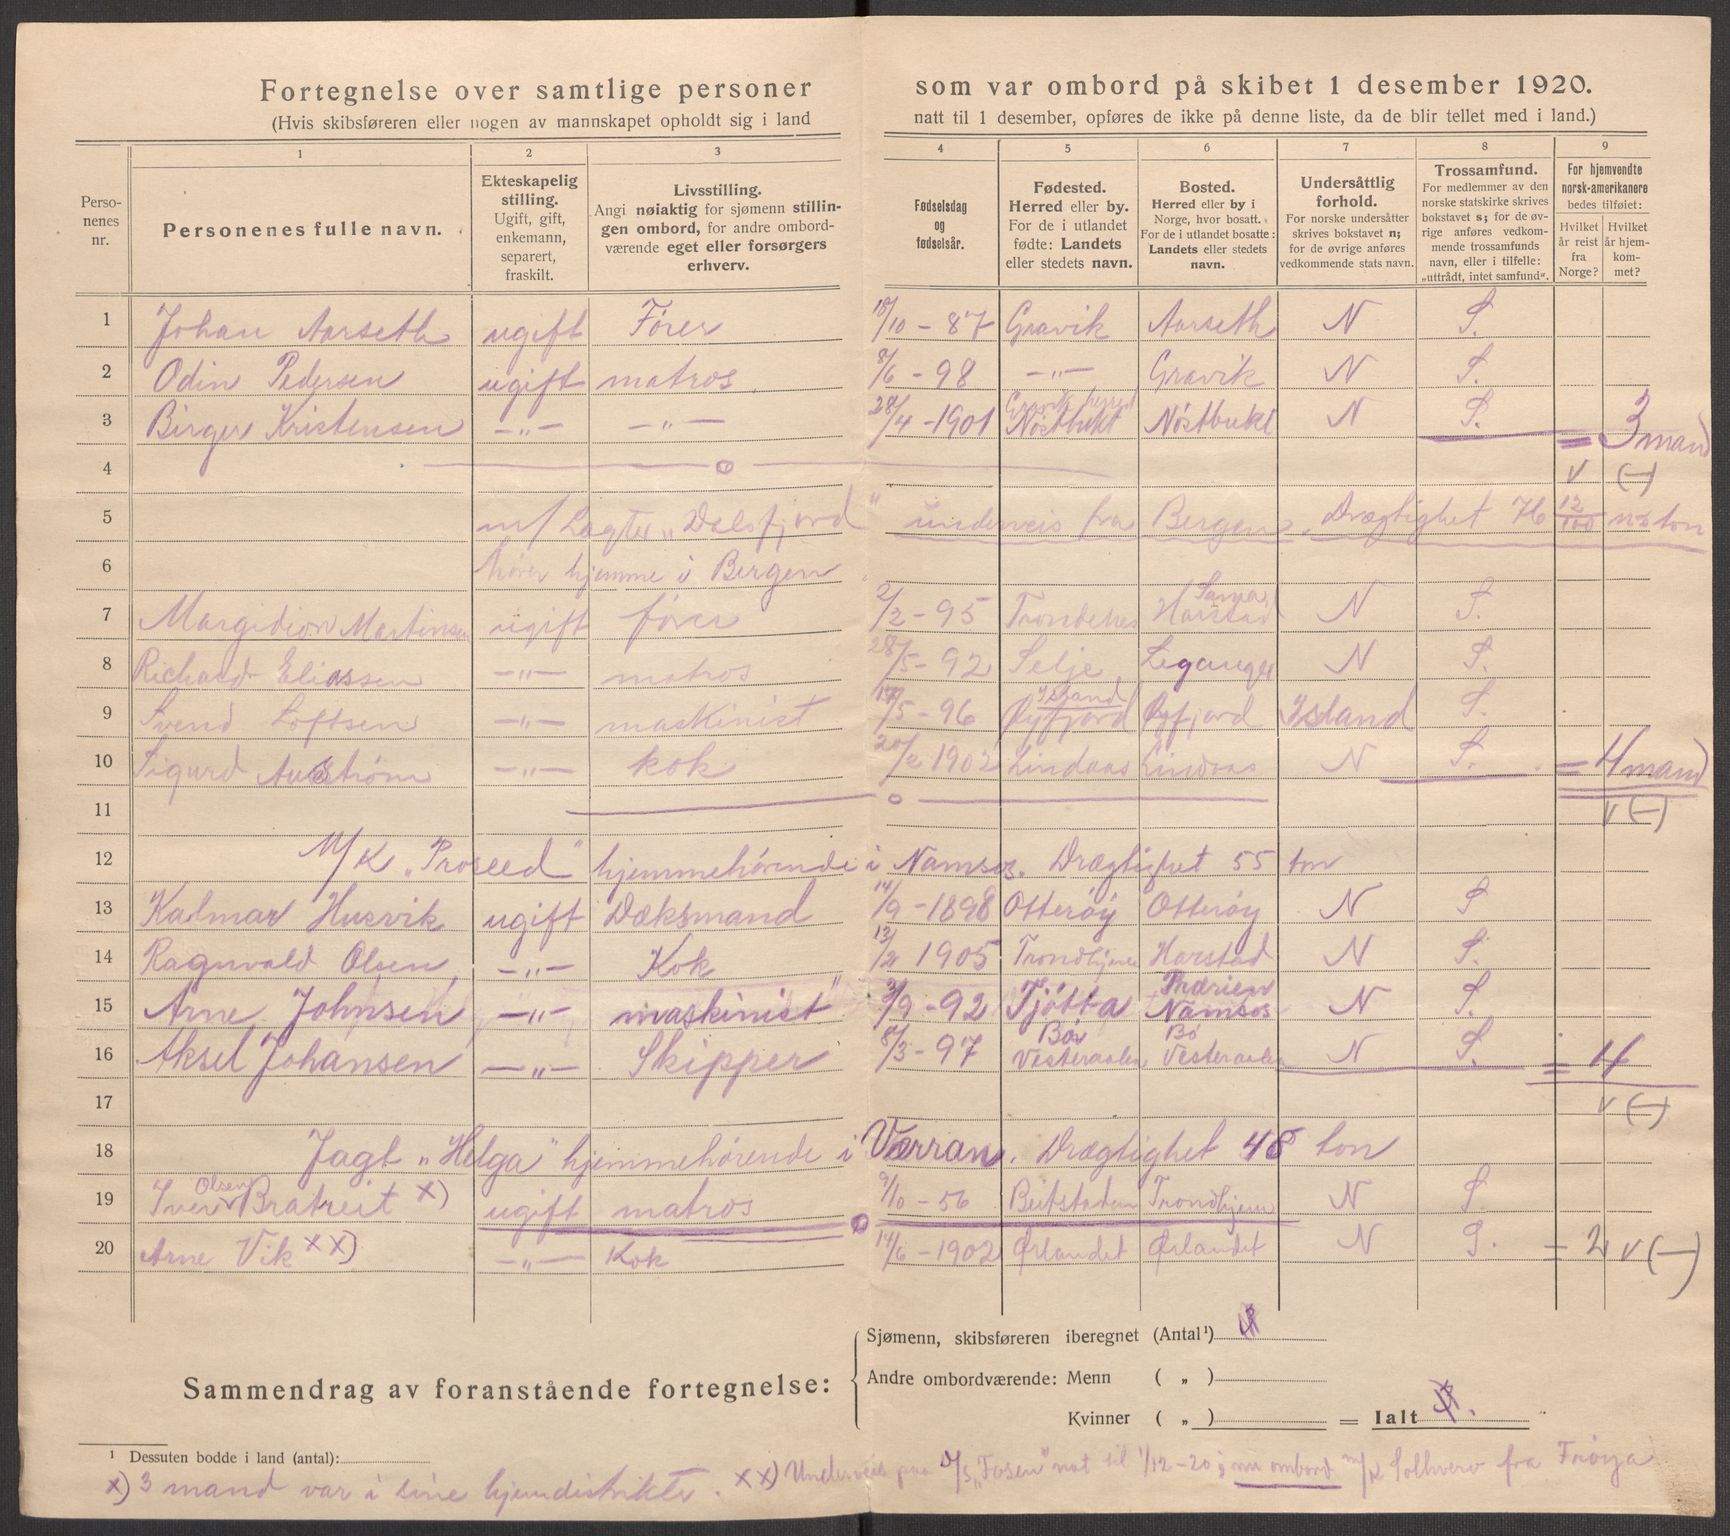 Fortegnelse over samtlige personer som var ombord på skibet 1 desember 1920.
(Hvis skibsføreren eller nogen av mannskapet opholdt sig i land natt til 1 desember, opføres de ikke på denne liste, da de blir tellet med i land.)
Personenes nr.
1 Personenes fulle navn.
2 Ekteskapelig stilling. Ugift, gift, enkemann, separert, fraskilt.
3 Livsstilling. Angi nøiaktig for sjømenn stillingen ombord, for andre ombordværende eget eller forsørgers erhverv.
4 Fødselsdag og fødselsår.
5 Fødested. Herred eller by. For de i utlandet fødte: Landets eller stedets navn.
6 Bosted. Herred eller by i Norge, hvor bosatt. For de i utlandet bosatte: Landets eller stedets navn.
7 Undersåttlig forhold. For norske undersåtter skrives bokstavet n; for de øvrige anføres vedkommende stats navn.
8 Trossamfund. For medlemmer av den norske statskirke skrives bokstavet s; for de øvrige anføres vedkommende trossamfunds navn, eller i tilfelle: „uttrådt, intet samfund“.
9 For hjemvendte norsk-amerikanere bedes tilføiet: Hvilket år reist fra Norge? Hvilket år hjemkommet?
1 Johan Aarseth ugift Fører 18/10 - 87 Gravik Aarseth N S.
2 Odin Pedersen ugift matros 8/6 - 98 -„- Gravik N S.
3 Birger Kristensen -„- -„- 28/4 - 1901 Gravik herred Nöstbukt Nöstbukt N S. = 3 mand
4 v (-)
5 m/ Lagter „Dalsfjord“ underveis fra Bergen. Drægtighet 76 12/100 ns ton
6 hører hjemme i Bergen
7 Margidion Martinsen ugift fører 2/2 - 95 Trondenes Sama Harstad N S.
8 Richard Eliassen -„- matros 28/5 - 92 Selje Leganger N S.
9 Svend Loftsen -„- maskinist 17/5 - 96 Island Øyfjord Øyfjord Island S.
10 Sigurd -„- kok 20/2 1902 Lindaas Lindaas N S. = 4 mand
11 v (-)
12 M/K „Proseed“ hjemmehörende i Namsos. Drægtighet 55 ton
13 Kalmar Husvik ugift Dæksmand 14/9 - 1898 Otterøy Otterøy N S
14 Ragnvald Olsen -„- Kok 13/2 1905 Trondhjem Harstad N S.
15 Arne Johnsen -„- maskinist 3/9 - 92 Tjötta Namsos N S.
16 Aksel Johansen -„- Skipper 8/3 - 97 Bö Vesteraalen Bö Vesteraalen N S. = 4
17 v (-)
18 Jagt „Helga“ hjemmehörende i Værran. Drægtighet 48 ton
19 Iver Olsen Bratreit x) ugift matros 9/10 - 56 Beitstaden Trondhjem N S
20 Arne Vik xx) -„- Kok 14/6 - 1902 Ørlandet Ørlandet N S. = 2 v (-)
Sammendrag av foranstående fortegnelse:
Sjømenn, skibsføreren iberegnet (Antal¹)
Andre ombordværende: Menn ( „ )
Kvinner ( „ ) = Ialt
¹ Dessuten bodde i land (antal):
x) 3 mand var i sine hjemdistrikter. xx) Underveis paa D/S „Fosen“ nat til 1/12-20; nu ombord m/k Solhverv fra Fröya